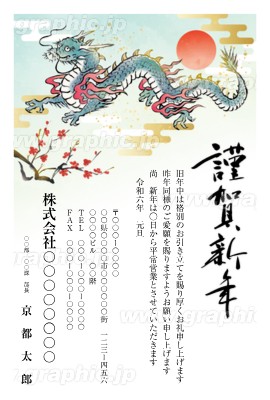 謹賀新年
旧年中は格別のお引き立てを賜り厚くお礼申し上げます
昨年同様のご愛顧を賜りますようお願い申し上げます
尚 新年は〇日から平常営業とさせていただきます
令和六年 元旦
〒〇〇〇-〇〇〇〇
〇〇県〇〇〇〇市〇〇〇〇〇街 一二三-四五六
〇〇ビル 〇〇階
TEL 〇〇〇-〇〇〇-〇〇〇〇
FAX 〇〇〇-〇〇〇-〇〇〇〇
株式会社〇〇〇〇〇〇〇
〇〇部 〇〇部 部長
京都太郎
graphic.jp
www.graphic.jp